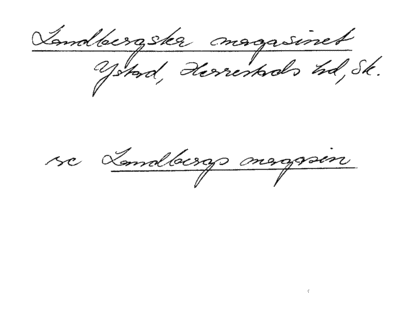 Landbergska magasinet
Ystad, Herrestads hd, Sk.
se Landbergs magasin